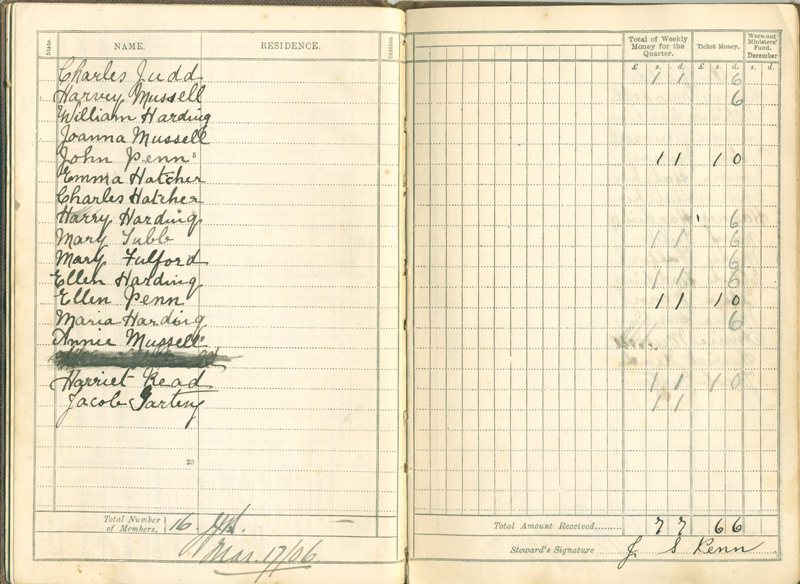 State. NAME. RESIDENCE. Station. Total of Weekly Money for the Quarter. Ticket Money. Worn-out Ministers' Fund. December
£ s. d. £ s. d. s. d.
Charles Judd 1 1 6
Harvey Mussell 6
William Harding
Joanna Mussell
John Penn 1 1 1 0
Emma Hatcher
Charles Hatcher
Harry Harding 6
Mary Tubb 1 1 6
Mary Fulford 6
Ellen Harding 1 1 6
Ellen Penn 1 1 1 0
Maria Harding 6
Annie Mussell
Harriet Read 1 1 1 0
Jacob 1 1
20
Total Number of Members, } 16. Total Amount Received......... 7 7 6 6
Mar. 17/06 Steward's Signature J S Penn